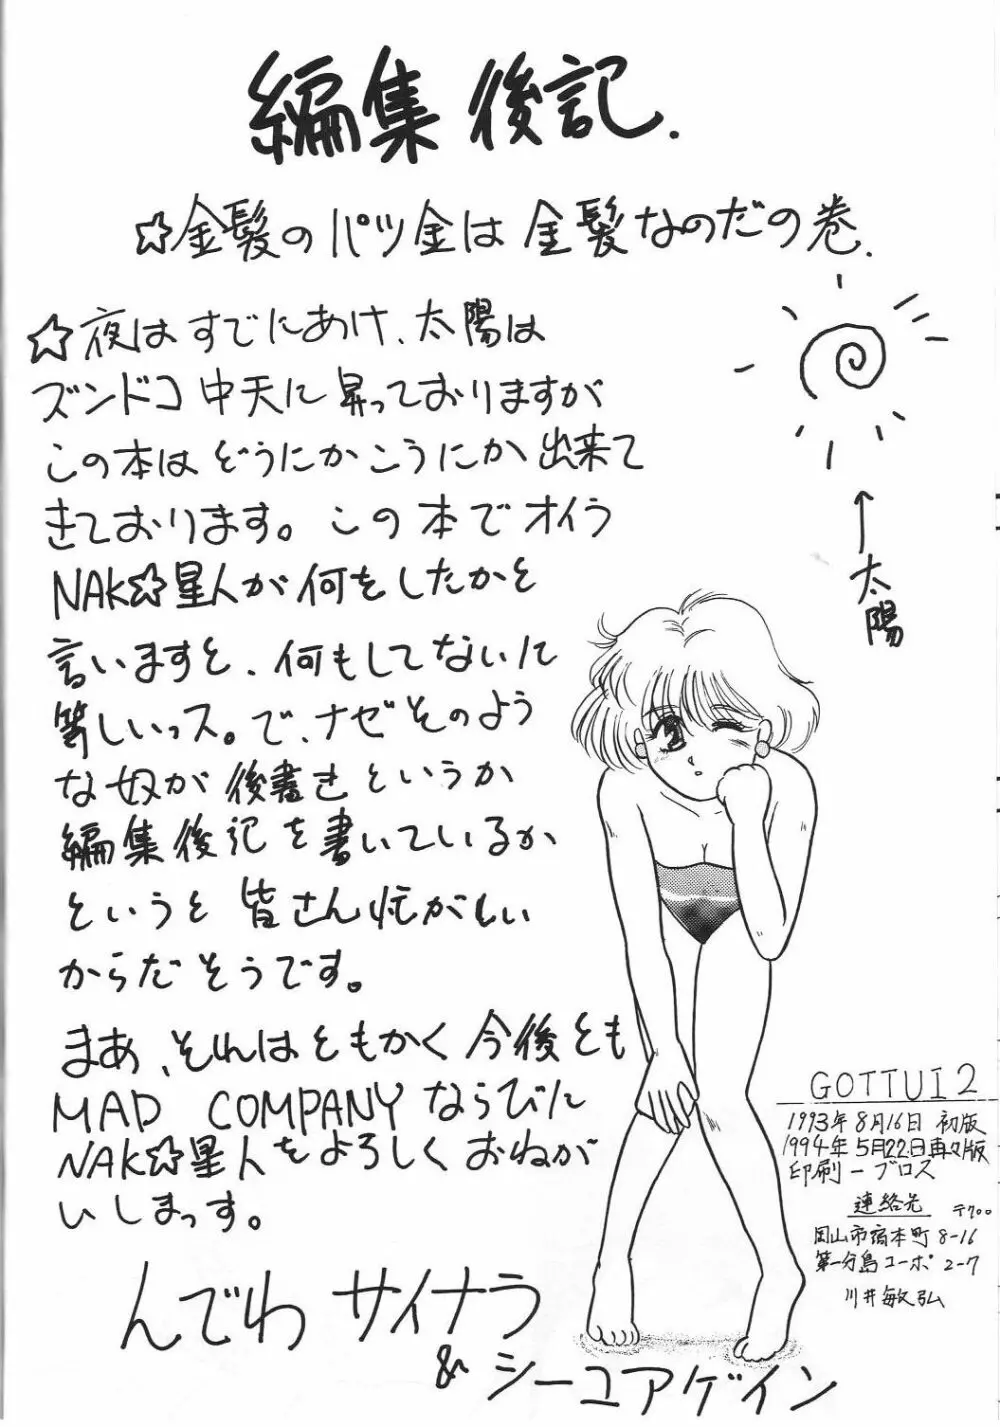 編集後記.
☆金髪のパツ金は金髪なのだの巻.
☆夜はすでにあけ、太陽は
ズンドコ中天に昇っておりますが
この本はどうにかこうにか出来て
きております。この本でオイラ
NAK☆星人が何をしたかを
言いますと、何もしてないに
等しいっス。で、ナゼそのよう
な奴が後書きというか
編集後記を書いているか
というと皆さん忙がしい
からだそうです。
まあ、それはともかく今後とも
MAD COMPANYならびに
NAK☆星人をよろしくおねが
いしまっす。
んでわサイナラ
&シーユアゲイン
↑太陽
GOTTUI 2
1993年8月16日 初版
1994年5月22日再々版
印刷ーブロス
連絡先 〒700
岡山市宿本町8-16
第一分島コーポ2-7
川井敏弘